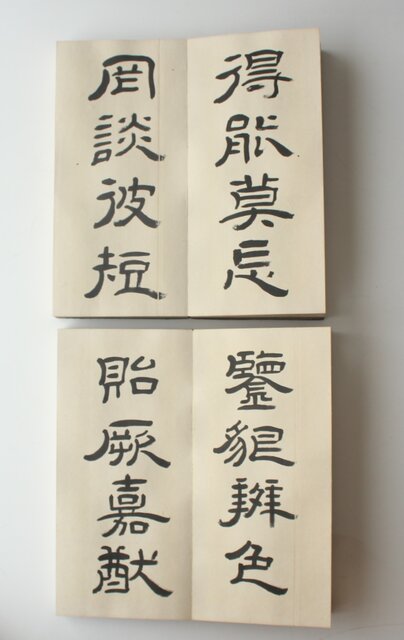 得能莫忘
罔談彼短
鑒貌辨色
貽厥嘉猷